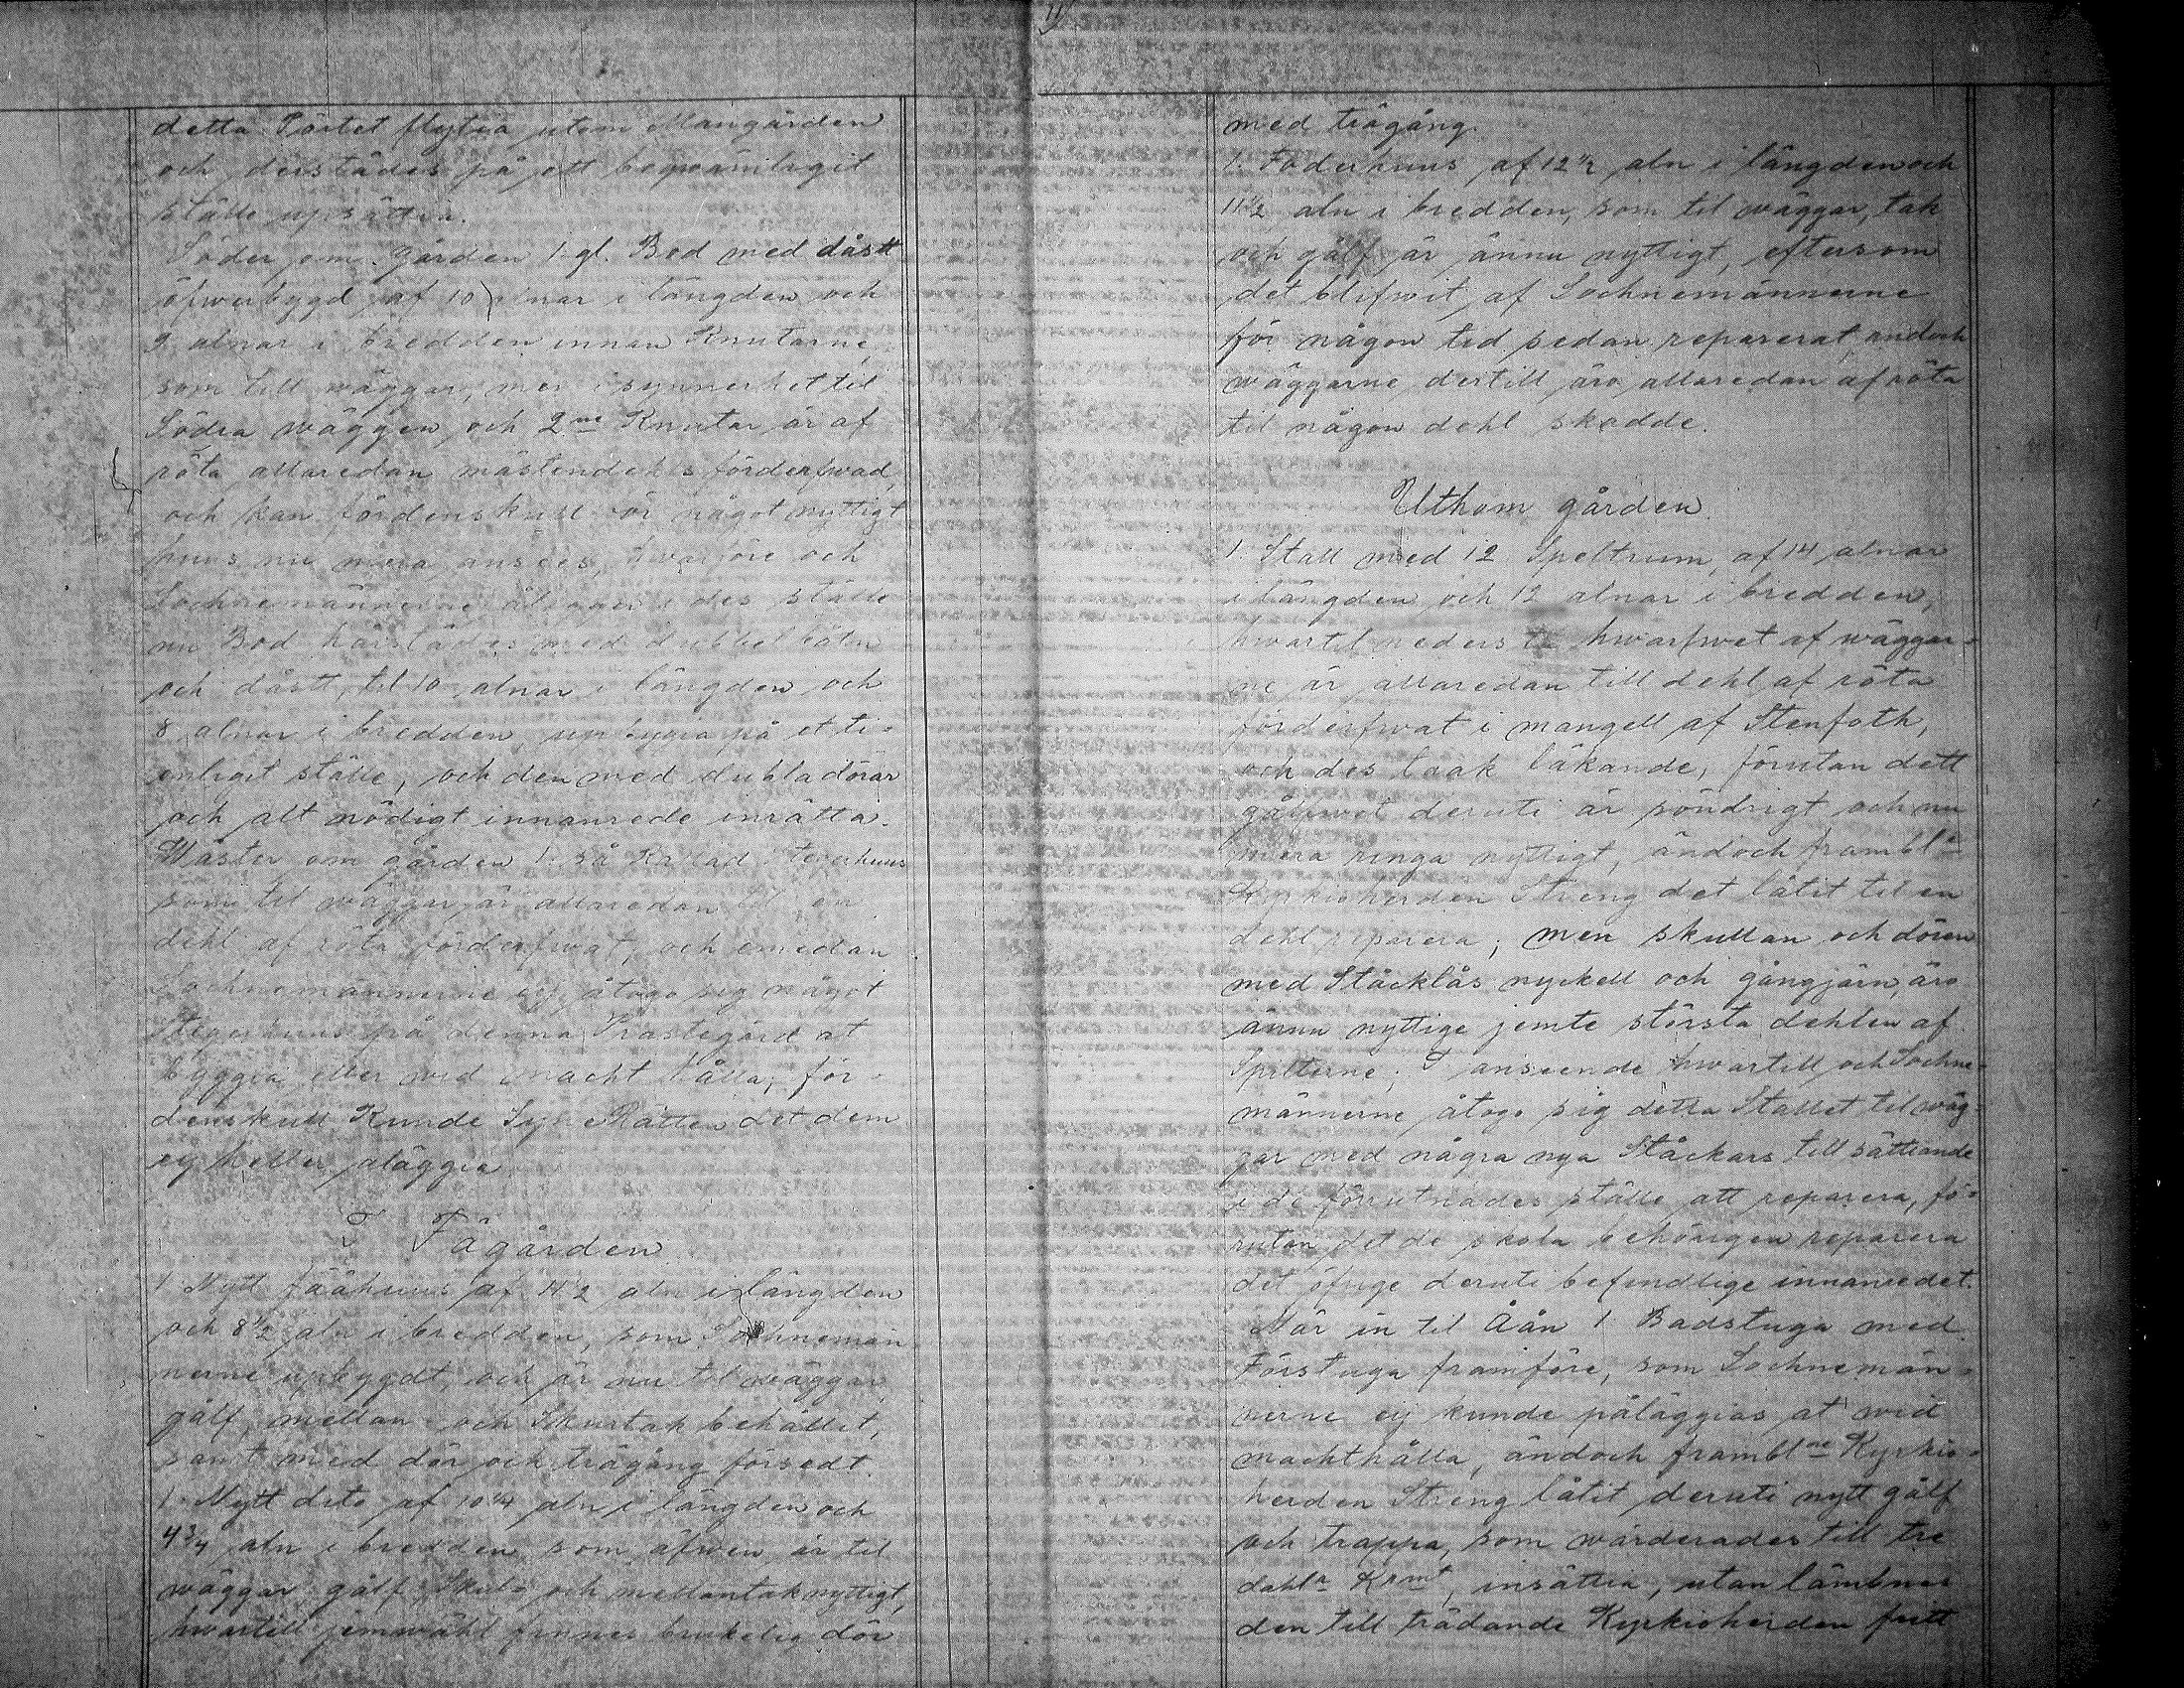 detta Pörtet flytia utom Mangården
och derstädes på ett beqwämligit
ställe upsättia.
Söder om gården 1 gl. Bod med dåstt
öfwerbygd af 10 alnar i längden och
9 alnar i bredden innan Knutarne,
som till wäggar, mer i synnerhet til
Södra wäggen och 2ne Knutar är af
röta allaredan mästendehls förderfwad,
och kan fördenskull ör något nyttigt
huus nu mera anses, hwarföre och
Sochnemännerne i des ställe
nu Bod härstädes med dubbel
och dåstt, til 10 alnar i längden och
8 alnar i bredden, upbygia på et ti-
enligit ställe, och den med dubla dörar
och alt nödigt innanrede inrätta.
Wäster om gården 1 så Kallad Stegerhuus
som til wäggar är allaredan til en
dehl af röta förderfwat, och emedan
Sochnemännerne ey åtogo sig något
Stegerhuus på denna Prästegård at
byggia eller wid macht hålla; för-
denskull Kunde Syne Rätten det dem
ey heller aläggia.
I Fägården
1 Nytt fäähuus af 11 1/2 aln i längden
och 8 1/2 aln i bredden, som Sochnemän
nerne upbygdt, och är nu til wäggar
gålf, mellan- och Skurtak behållit,
samt med dör och trägång försedt.
1 Nytt dito af 10 1/4 aln i längden och
4 3/4 aln i bredden, som äfwen är til
wäggar gålf Skul- och mellantak nyttigt,
hwartill jemwähl finnes brukelig dör
med trägång.
1 Foderhuus af 12 1/2 aln i längden och
11 1/2 aln i bredden, som til wäggar, tak
och gålf är ännu nyttigt, eftersom
det blifwit af Sochnemännerne
för någon tid sedan reparerat, andoch
wäggarne dertill äro allaredan af röta
til någon dehl skadde.
Uthom gården
1 Stall med 12 Speltrum, af 14 alnar
i längden och 12 alnar i bredden,
hwartil nedersta hwarfwet af wäggar-
ne är allaredan till dehl af röta
förderfwat i mangell af Stenfoth,
och des taak läkande, förutan dett
gålfwet deruti är söndrigt och nu
mera ringa nyttigt, ändoch frambl:ne
Kyrkioherden Streng det låtit til en
dehl reparera; men skullan och dören
med Ståcklås nyckell och gångjärn, äro
ännu nyttige jemte största dehlen af
Spilterne; I anseende hwartill och Sochne-
männerne åtogo sig detta Stallet til wäg-
gar med några nya Ståckars till sättiande
i de förrutnades ställe att reparera, fö-
rutan det de skola behörigen reparera
det öfrige deruti befindtlige innanredet.
När in til Åån 1 Badstuga med
Förstuga framföre, som Sochnemän-
nerne ey kunde påläggias at wid
macht hålla, ändoch frambl:ne Kyrkio-
herden Streng låtit deruti nytt gålf
och trappa, som wärderades till tre
dahlr Krmt, insättia, utan lämbnas
den till trädande Kyrkioherden fritt